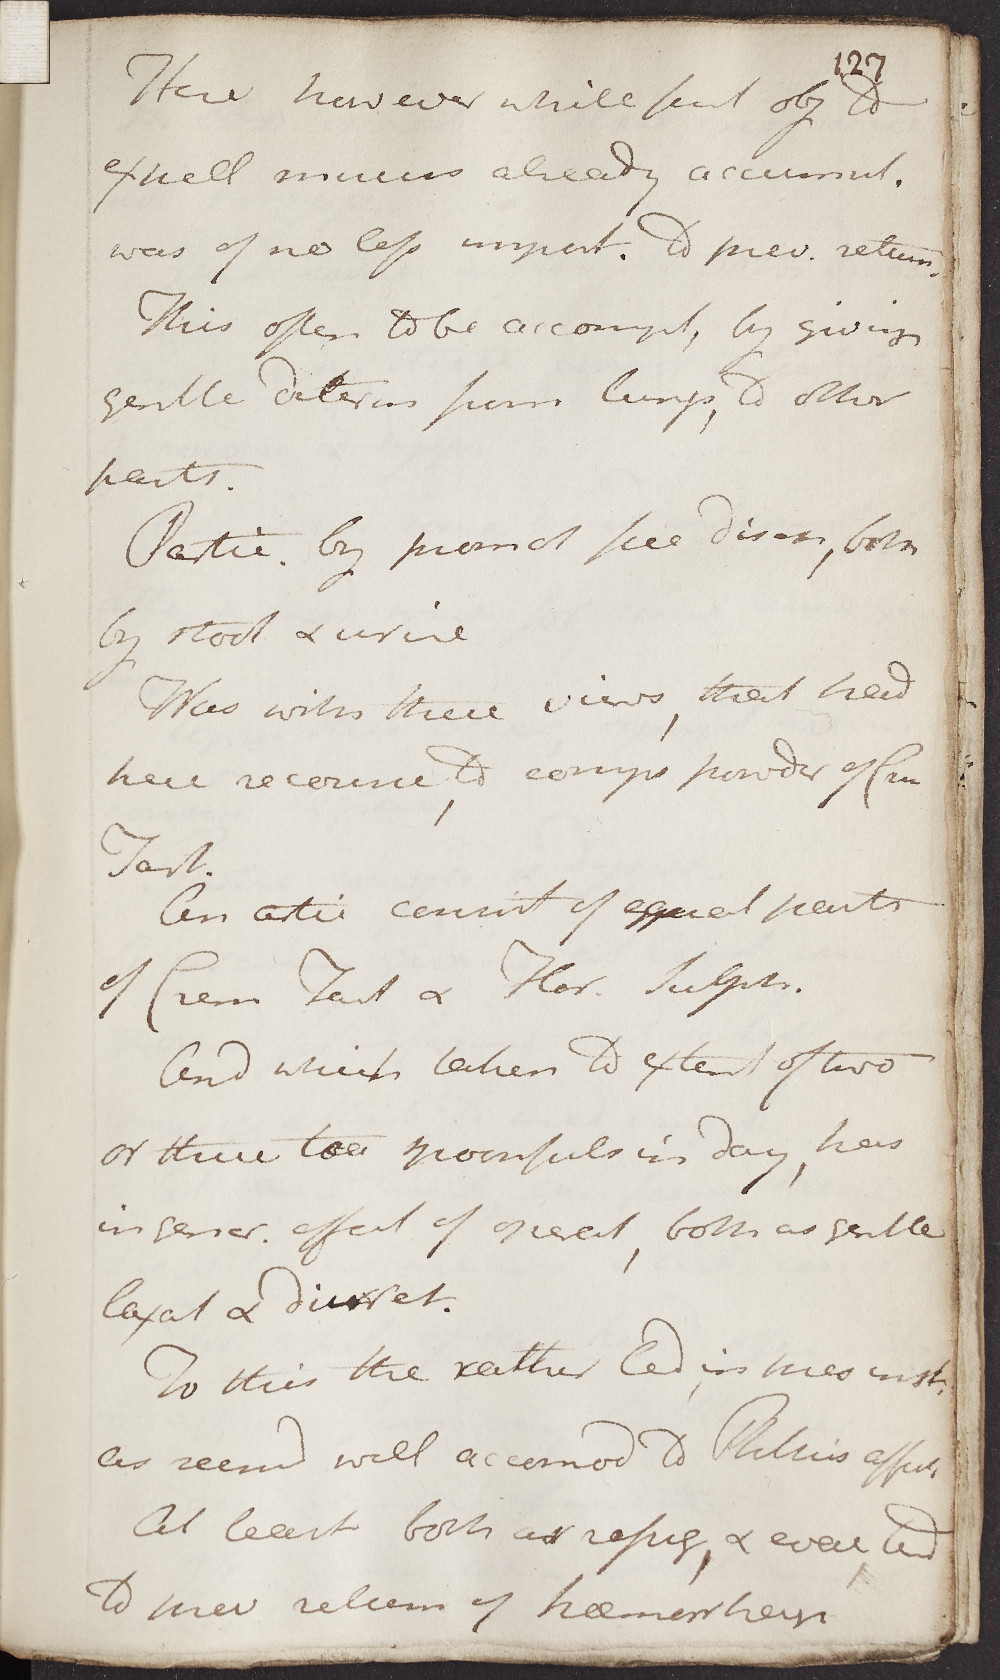 127
Here however while first obj to
expell mucus already accumul.
was of no less import. to prev. return.
This often to be accompl, by giving
gentle determ from lungs, to other
parts.
Partic. by promot free disch, both
by stool & urine
Was with these views, that had
here recourse, to comp powder of Crem
Tart.
An artic consist of equal parts
of Crem Tart & Flor. Sulph.
And which taken to extent of two
or three tea spoonfuls in day, has
in gener. effect of operat, both as gentle
laxat & diuret.
To this the rather led, in pres inst.
as seemd well accomod to Phthis affect.
At least both as refrig, & evac, tend
to prev return of hæmorrhage